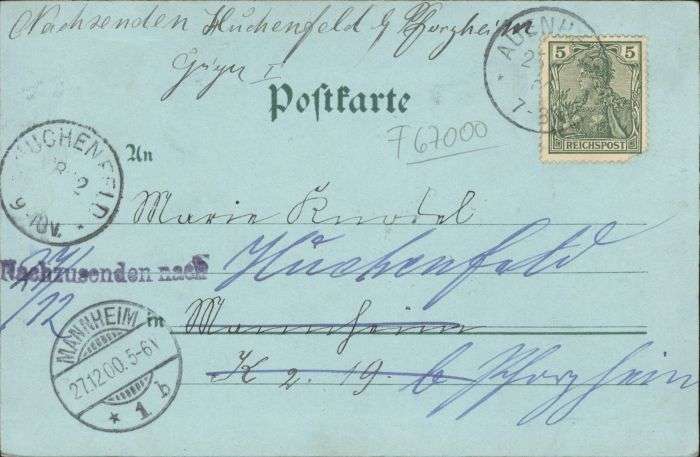 Nachsenden Huchenfeld b/ Pforzheim
Postkarte
F 67000
5 5
REICHSPOST
AUENH
7-8
HUCHENFELD
8 12
9-10V.
An
Marie Knodel
Nachzusenden nach
Huchenfeld
27/12
in Mannheim
K 2. 19. b Pforzheim
MANNHEIM
27.12.00.5-6V
* 1 b